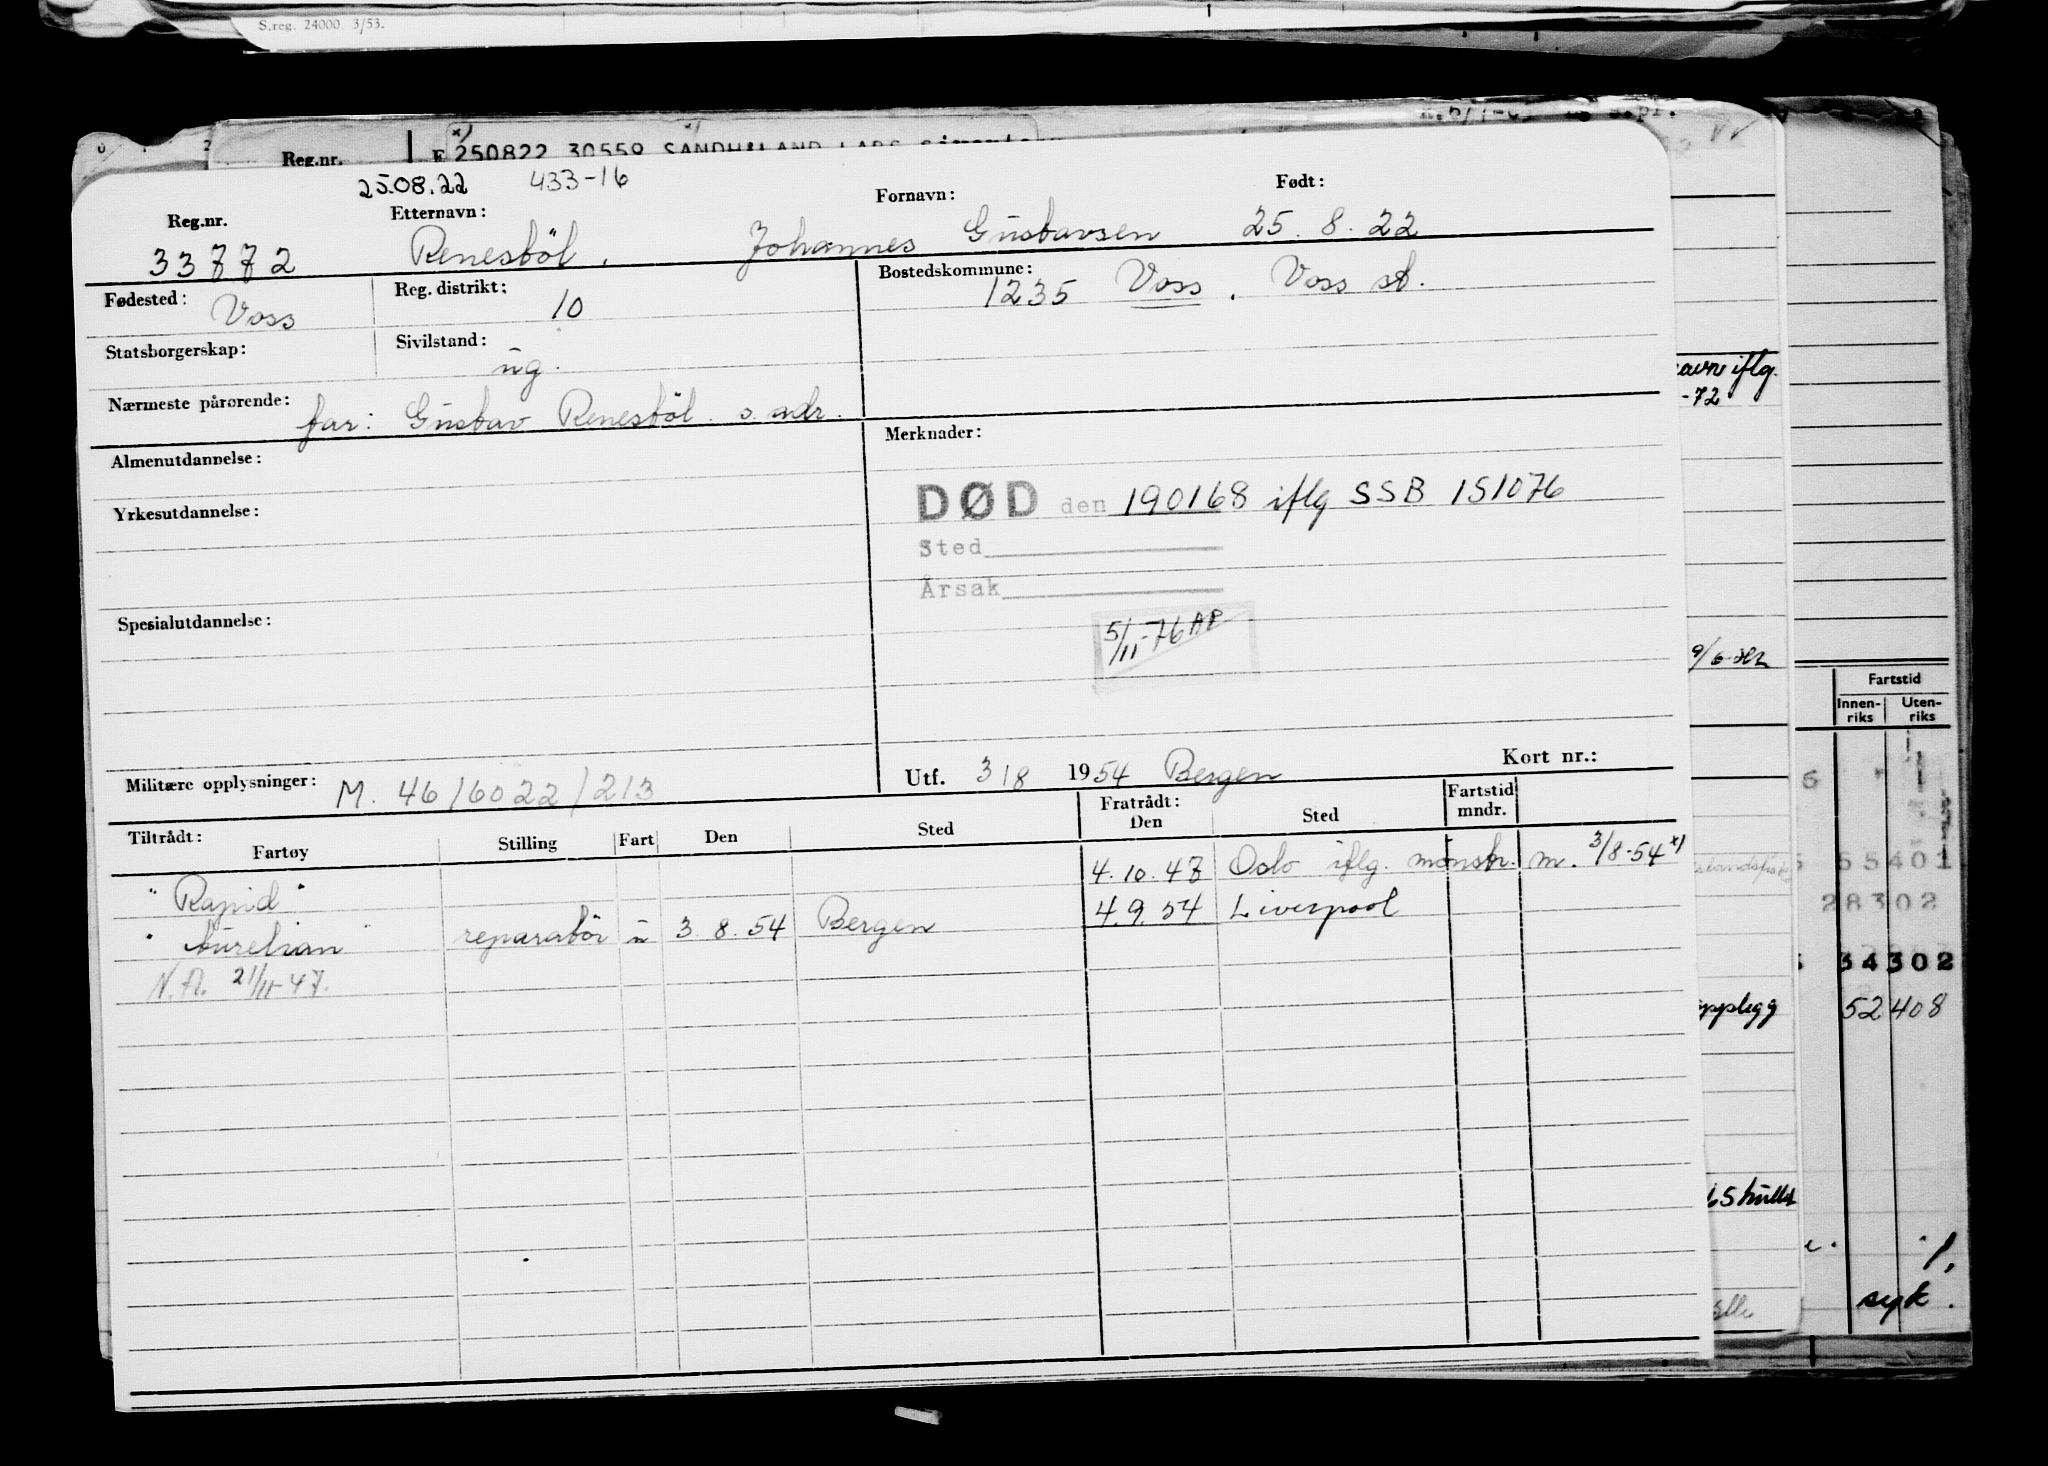 S.reg. 24000. 3/53.
Reg.nr. 250822 30559 SANDHÅLAND LARS
25.08.22 433-16
Reg.nr. Etternavn: Fornavn: Født:
33772 Renesböl, Johannes Gustavsen 25. 8. 22
Fødested: Voss Reg. distrikt: 10 Bostedskommune: 1235 Voss, Voss st.
Statsborgerskap: Sivilstand: ug.
Nærmeste pårørende: far: Gustav Renesböl. s. adr.
Almenutdannelse: Merknader:
Yrkesutdannelse: DØD den 190168 iflg SSB 151076
Sted
Årsak
Spesialutdannelse: 5/11-76 AP
Militære opplysninger: M. 46/6022/213 Utf. 3/8 1954 Bergen Kort nr.:
Tiltrådt: Fratrådt: Fartstid
Fartøy Stilling Fart Den Sted Den Sted mndr.
"Rapid" 4.10.47 Oslo iflg. mönstr. m. 3/8-54 x)
"Aurelian" reparatör u 3.8.54 Bergen 4.9.54 Liverpool
N.A. 21/11-47.
avn iflg.
-72
Fartstid
Innen-riks Uten-riks
55401
28302
34302
opplegg 52408
syk.